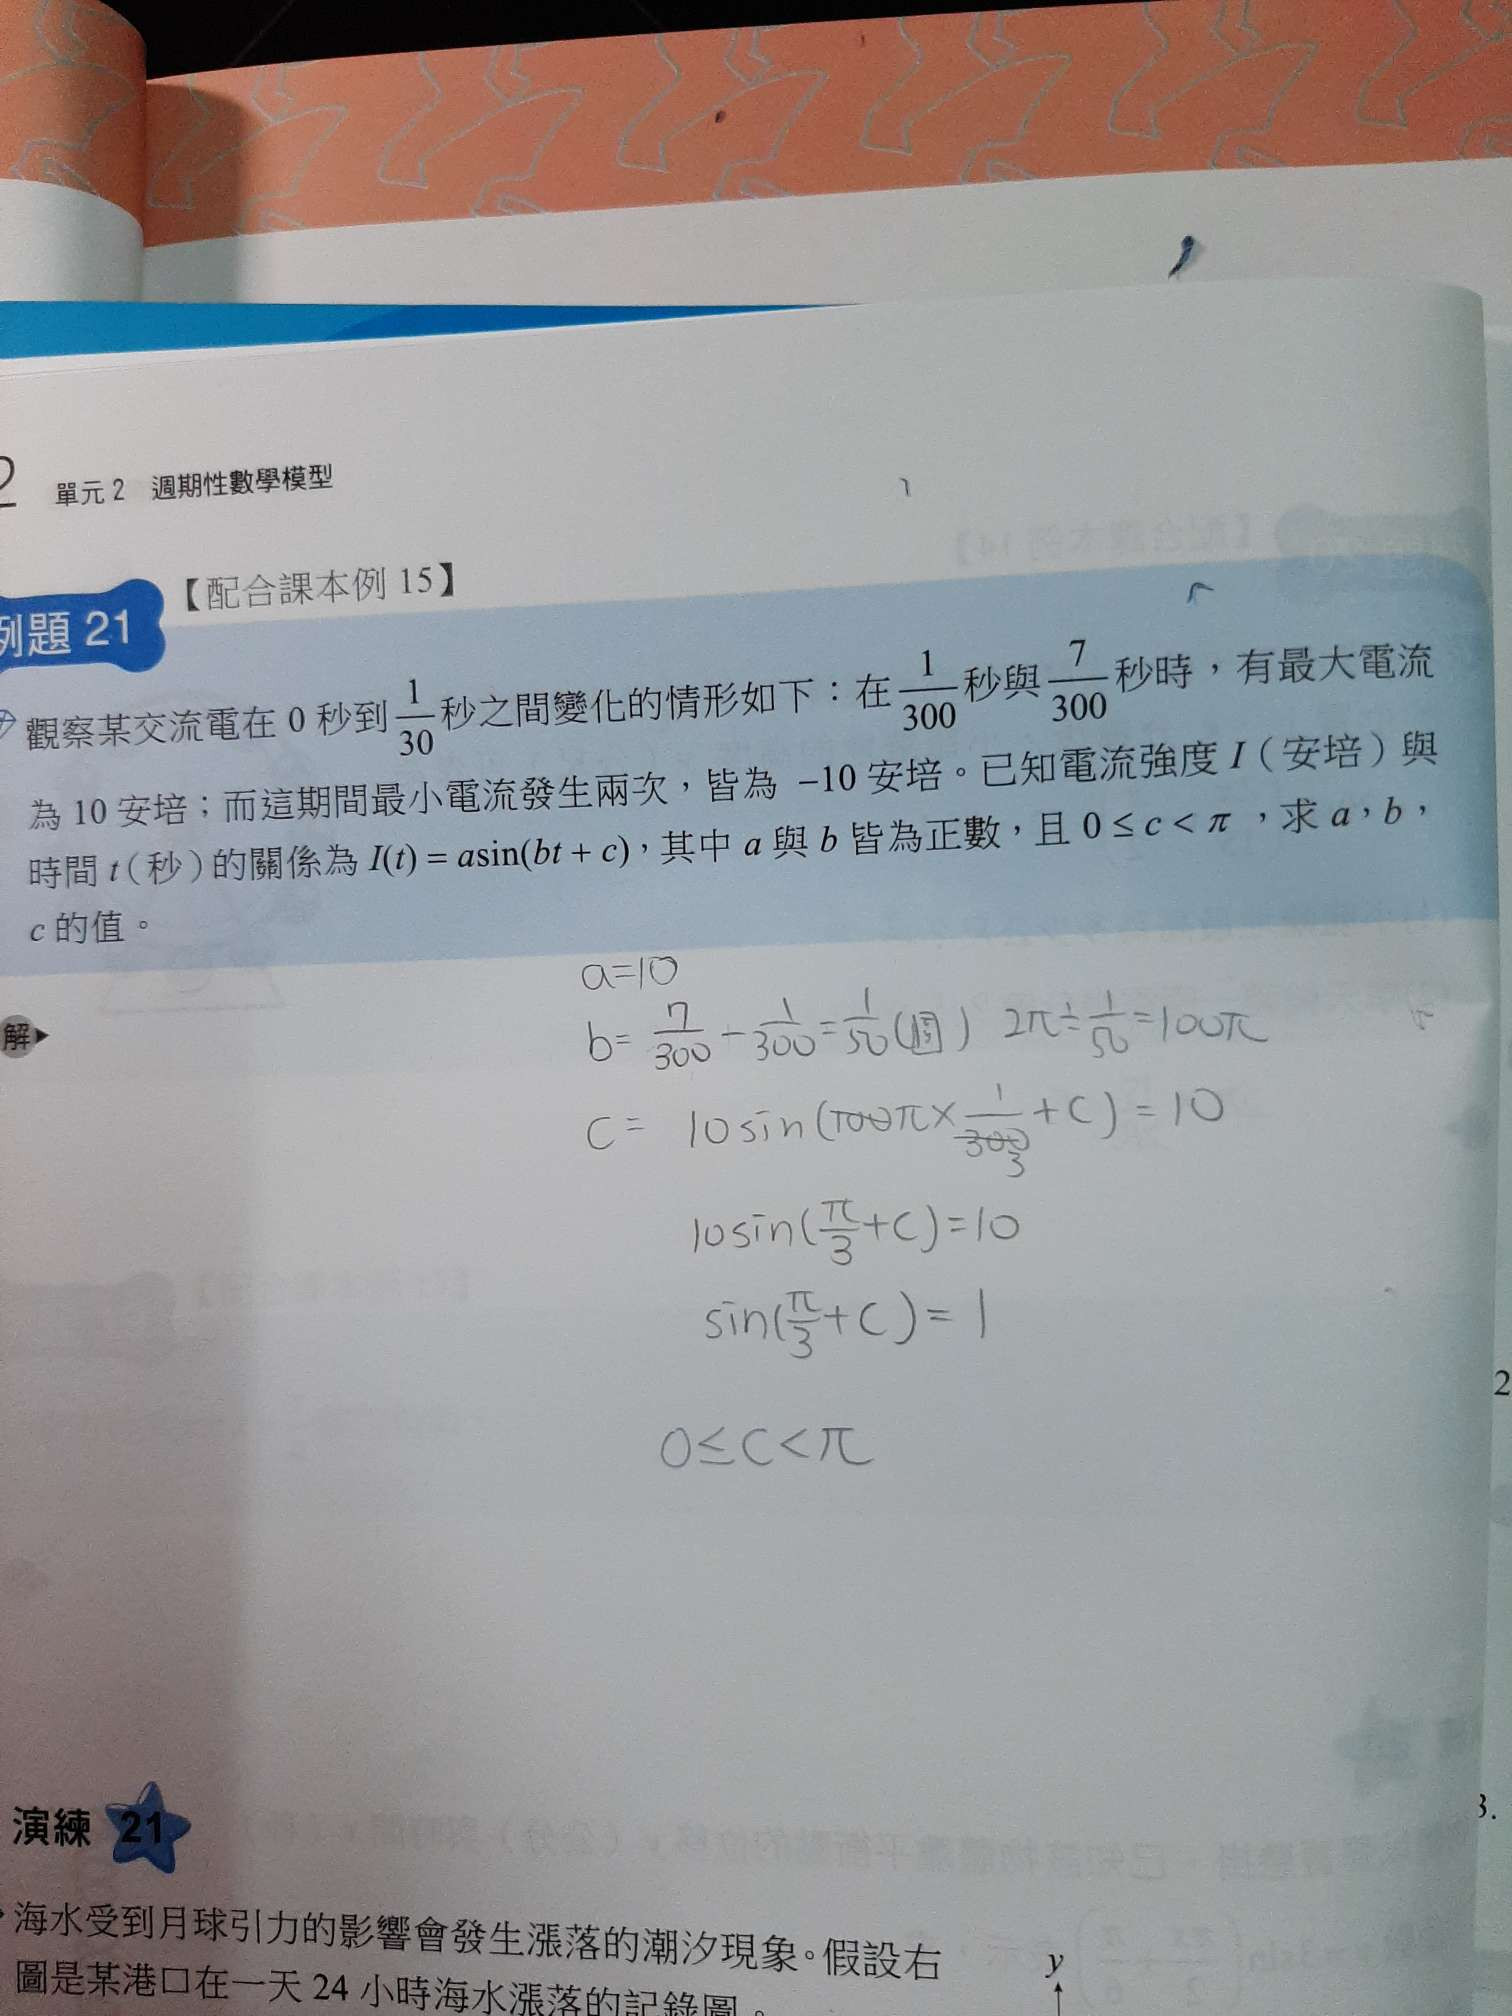 2 單元 2 週期性數學模型
例題 21 【配合課本例 15】
觀察某交流電在 0 秒到 1/30 秒之間變化的情形如下：在 1/300 秒與 7/300 秒時，有最大電流
為 10 安培；而這期間最小電流發生兩次，皆為 −10 安培。已知電流強度 I（安培）與
時間 t（秒）的關係為 I(t) = asin(bt + c)，其中 a 與 b 皆為正數，且 0 ≤ c < π，求 a，b，
c 的值。
解
a=10
b= 7/300 − 1/300 = 1/50 (週) 2π ÷ 1/50 = 100π
c= 10sin(100π × 1/300 + c) = 10
3
10sin(π/3 + c) = 10
sin(π/3 + c) = 1
0 ≤ c < π
2
演練 21
3.
海水受到月球引力的影響會發生漲落的潮汐現象。假設右
圖是某港口在一天 24 小時海水漲落的記錄圖。
y